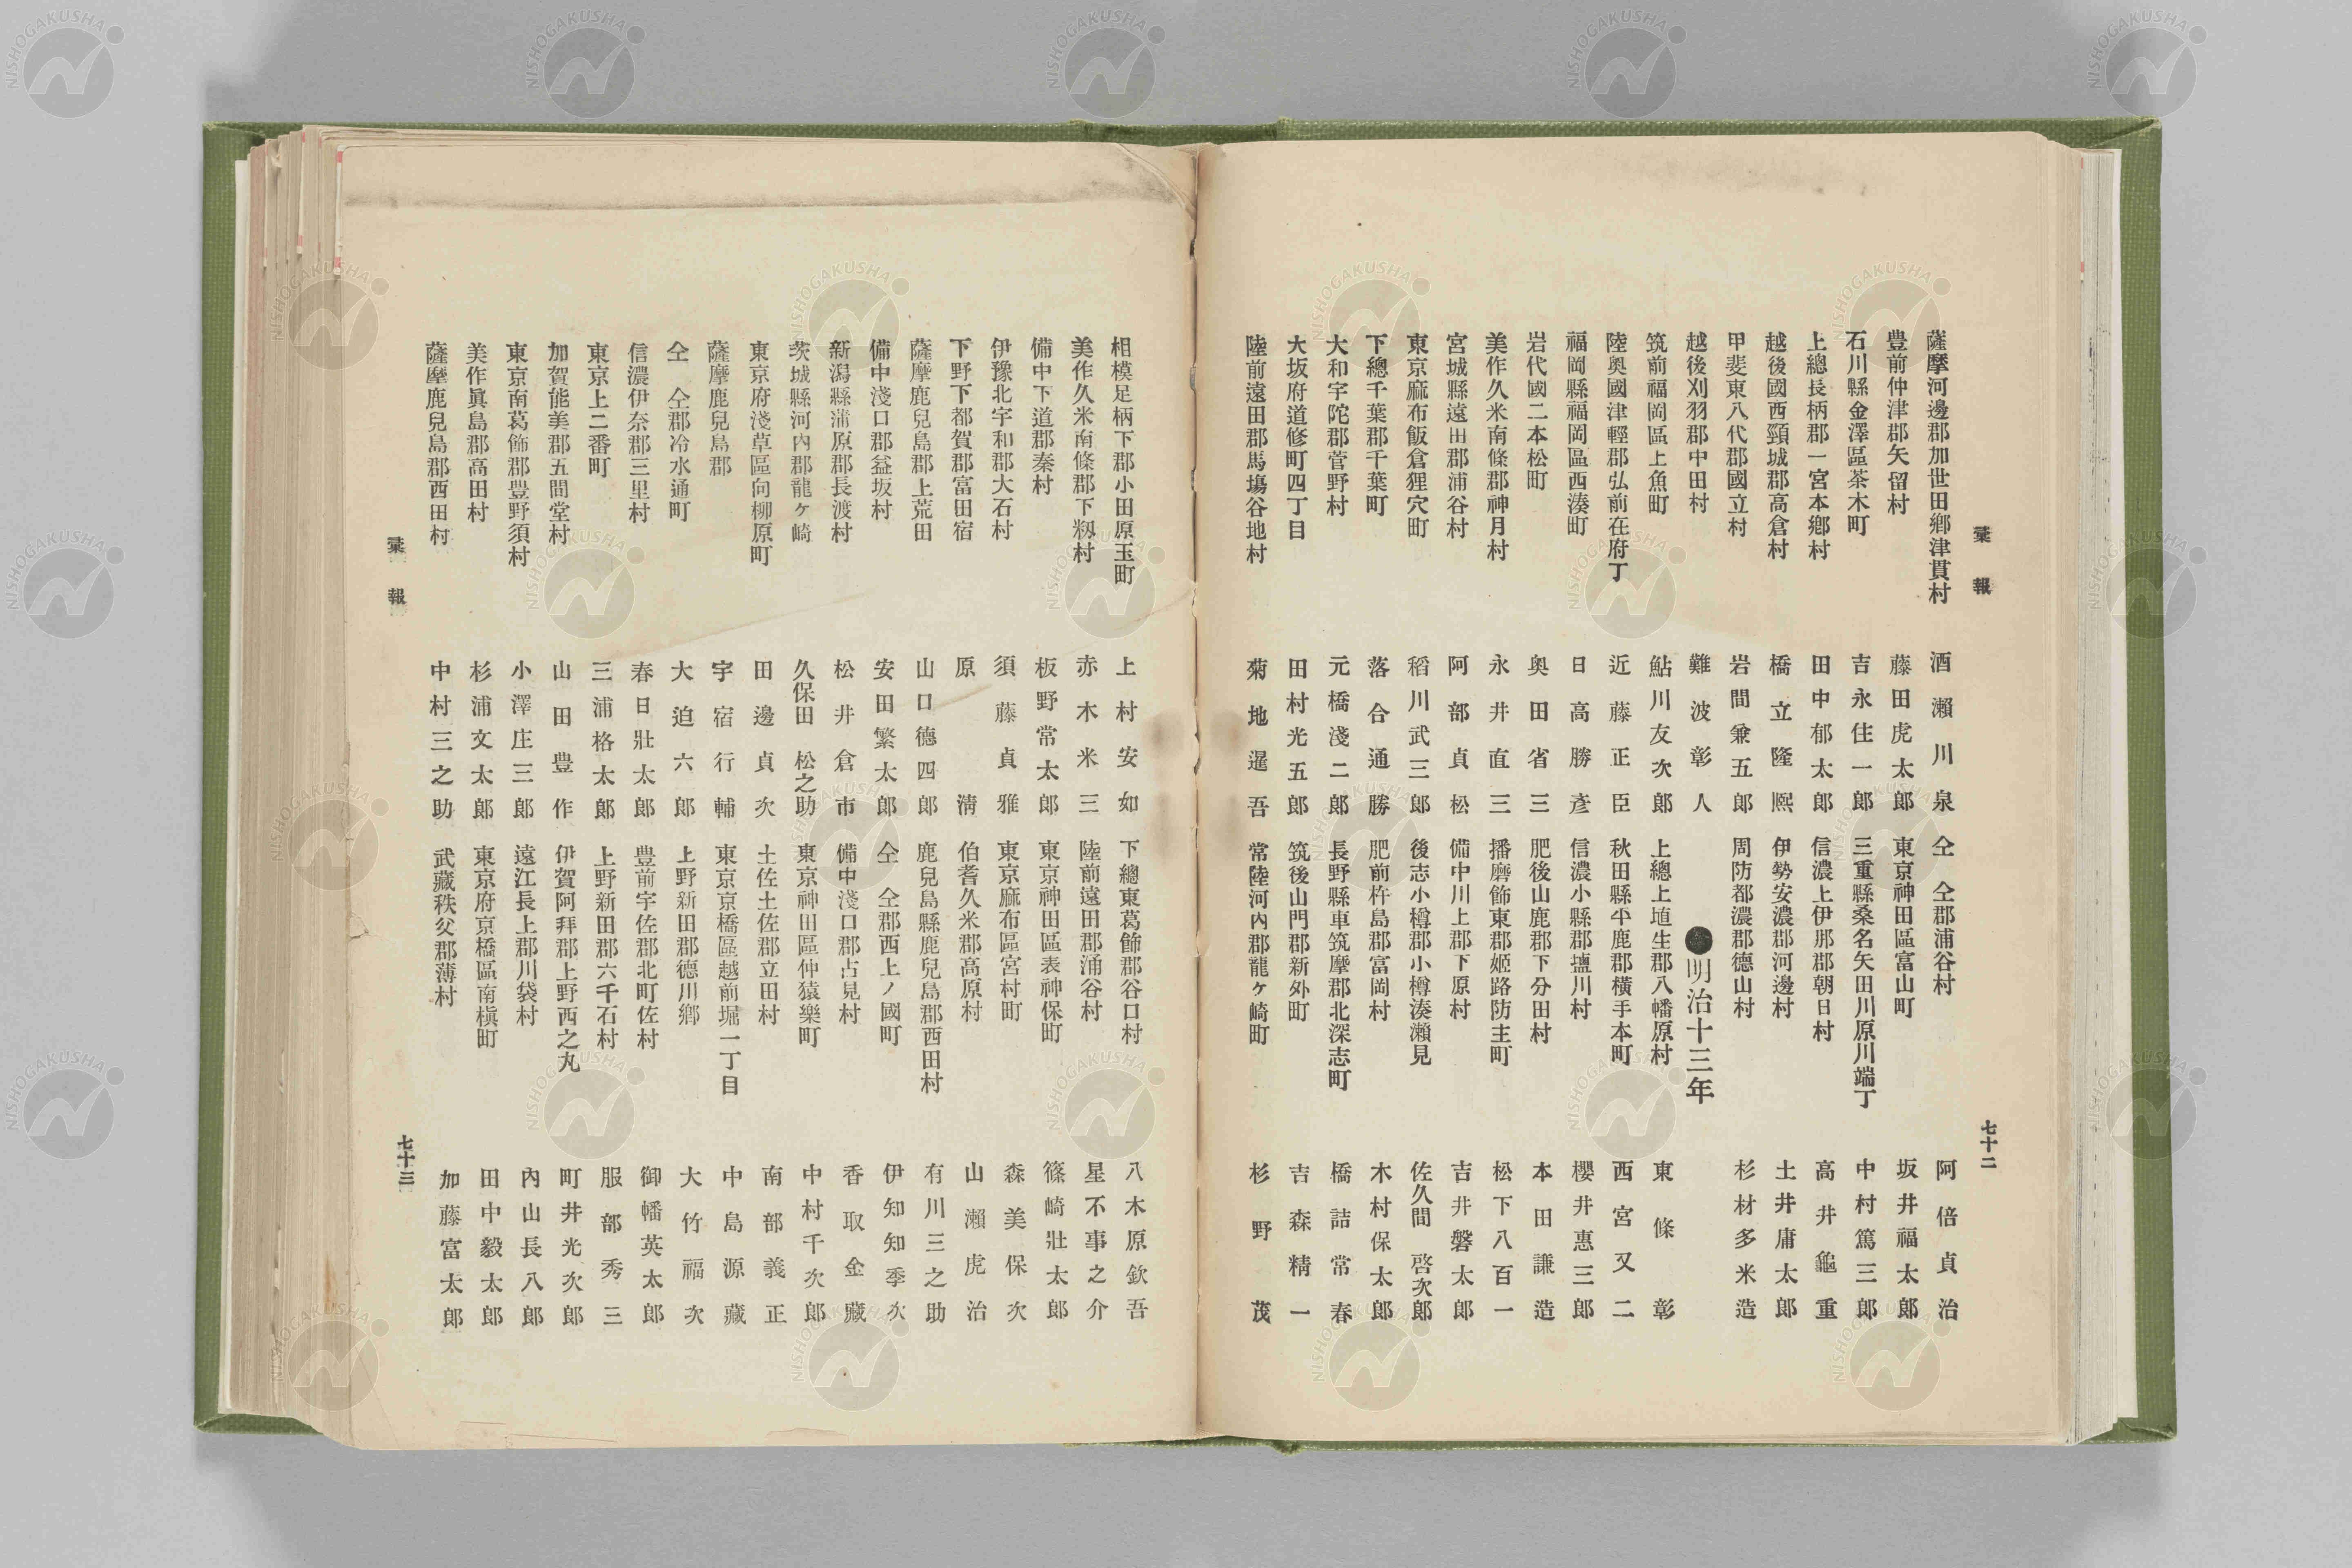 彙報
薩摩河邊郡加世田鄕津貫村 酒瀨川泉
豊前仲津郡矢留村 藤田虎太郎
石川縣金澤區茶木町 吉永住一郎
上總長柄郡一宮本鄕村 田中郁太郎
越後國西頸城郡高倉村 橋立隆熈
甲斐東八代郡國立村 岩間兼五郎
越後刈羽郡中田村 難波彰人
筑前福岡區上魚町 鮎川友次郎
陸奥國津輕郡弘前在府丁 近藤正臣
福岡縣福岡區西湊町 日高勝彥
岩代國二本松町 奥田省三
美作久米南條郡神月村 永井直三
宮城縣遠田郡浦谷村 阿部貞松
東京麻布飯倉狸穴町 稻川武三郎
下總千葉郡千葉町 落合通勝
大和宇陀郡菅野村 元橋淺二郎
大坂府道修町四丁目 田村光五郎
陸前遠田郡馬塲谷地村 菊地暹吾
仝 仝郡浦谷村 阿倍貞治
東京神田區富山町 坂井福太郎
三重縣桑名矢田川原川端丁 中村篤三郎
信濃上伊那郡朝日村 高井龜重
伊勢安濃郡河邊村 土井庸太郎
周防都濃郡德山村 杉材多米造
●明治十三年
上總上埴生郡八幡原村 東條彰
秋田縣平鹿郡横手本町 西宮又二
信濃小縣郡塩川村 櫻井惠三郎
肥後山鹿郡下分田村 本田謙造
播磨飾東郡姬路防主町 松下八百一
備中川上郡下原村 吉井磐太郎
後志小樽郡小樽湊瀨見 佐久間啓次郎
肥前杵島郡富岡村 木村保太郎
長野縣車筑摩郡北深志町 橋詰常春
筑後山門郡新外町 吉森精一
常陸河內郡龍ヶ崎町 杉野茂
七十二
相模足柄下郡小田原玉町 上村安如
美作久米南條郡下籾村 赤木米三
備中下道郡秦村 板野常太郎
伊豫北宇和郡大石村 須藤貞雅
下野下都賀郡富田宿 原淸
薩摩鹿兒島郡上荒田 山口德四郎
備中淺口郡益坂村 安田繁太郎
新潟縣蒲原郡長渡村 松井倉市
茨城縣河內郡龍ヶ崎 久保田松之助
東京府淺草區向柳原町 田邊貞次
薩摩鹿兒島郡 宇宿行輔
仝 仝郡冷水通町 大迫六郎
信濃伊奈郡三里村 春日壯太郎
東京上二番町 三浦格太郎
加賀能美郡五間堂村 山田豊作
東京南葛飾郡豊野須村 小澤庄三郎
美作眞島郡高田村 杉浦文太郎
薩摩鹿兒島郡西田村 中村三之助
下總東葛飾郡谷口村 八木原欽吾
陸前遠田郡涌谷村 星不事之介
東京神田區表神保町 篠崎壯太郎
東京麻布區宮村町 森美保次
伯耆久米郡高原村 山瀨虎治
鹿兒島縣鹿兒島郡西田村 有川三之助
仝 仝郡西上ノ國町 伊知知季次
備中淺口郡占見村 香取金藏
東京神田區仲猿樂町 中村千次郎
土佐土佐郡立田村 南部義正
東京京橋區越前堀一丁目 中島源藏
上野新田郡德川鄕 大竹福次
豊前宇佐郡北町佐村 御幡英太郎
上野新田郡六千石村 服部秀三
伊賀阿拜郡上野西之丸 町井光次郎
遠江長上郡川袋村 內山長八郎
東京府京橋區南槇町 田中毅太郎
武藏秩父郡薄村 加藤富太郎
彙報
七十三